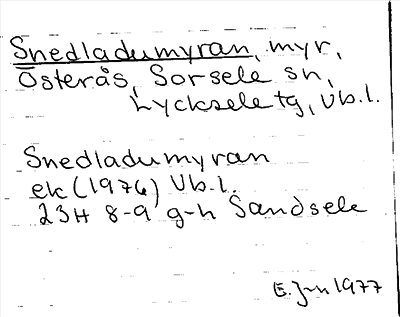 Snedladumyran, myr,
Österås, Sorsele sn,
Lycksele tg, Vb.l.
Snedladumyran
ek (1976) Vb.l.
23H 8-9 g-h Sandsele
E. Jn 1977